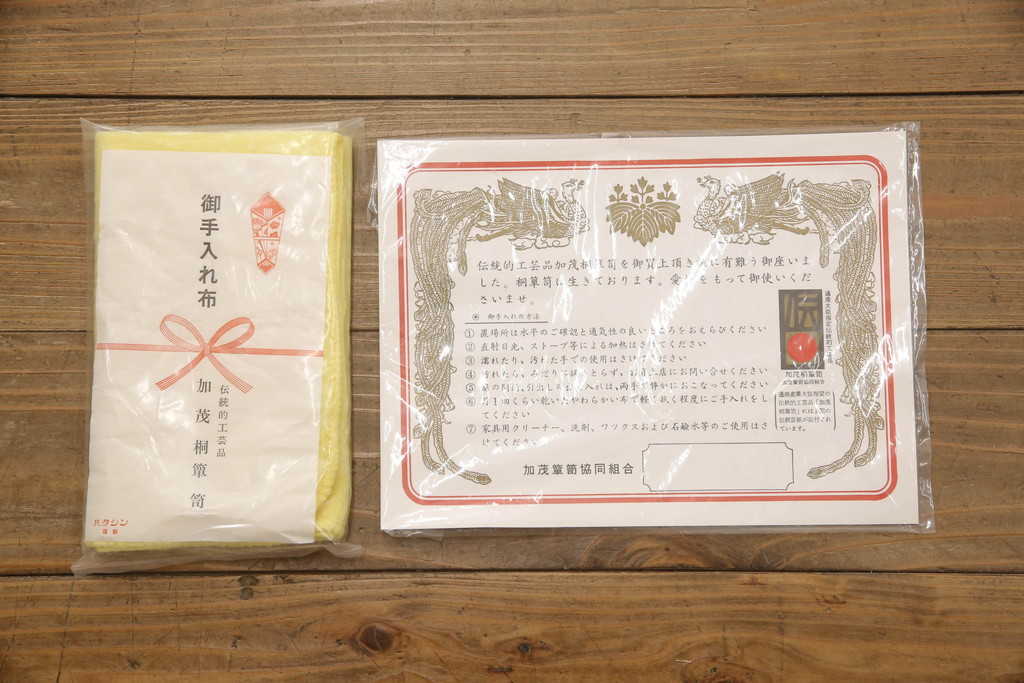 御手入れ布
伝統的工芸品
加茂桐簞笥
ハクシン
謹製
伝統的工芸品加茂桐簞笥を御買上頂き誠に有難う御座いま
した。桐簞笥は生きております。愛情をもって御使いくだ
さいませ。
御手入れの方法
① 置場所は水平のご確認と通気性の良いところをおえらびください
② 直射日光、ストーブ等による加熱はさけてください
③ 濡れたり、汚れた手での使用はさけてください
④ 汚れたら、みだりに拭いとらず、お買上店にお問い合せください
⑤ 扉の開閉、引出しの出し入れは、両手で静かにおこなってください
⑥ 月1回くらい乾いたやわらかい布で軽く拭く程度にご手入れをし
てください
⑦ 家具用クリーナー、洗剤、ワックスおよび石鹼水等のご使用はさ
けてください
加茂簞笥協同組合
伝
通産大臣指定伝統的工芸品
加茂桐簞笥
加茂簞笥協同組合
通商産業大臣指定の
伝統的工芸品「加茂
桐簞笥」には上記の
伝統証紙が貼付され
ています。